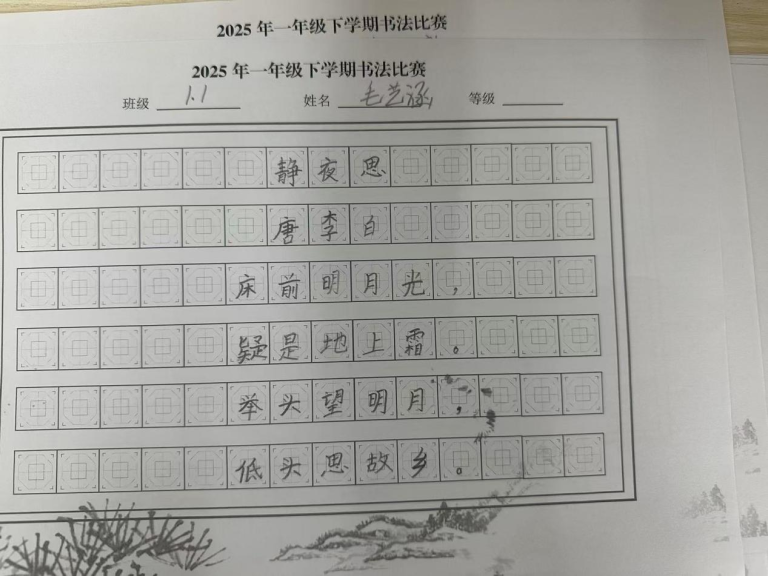 2025 年一年级下学期书法比赛
2025 年一年级下学期书法比赛
班级 1.1 姓名 毛艺涵 等级
静夜思
唐李白
床前明月光，
疑是地上霜。
举头望明月，
低头思故乡。